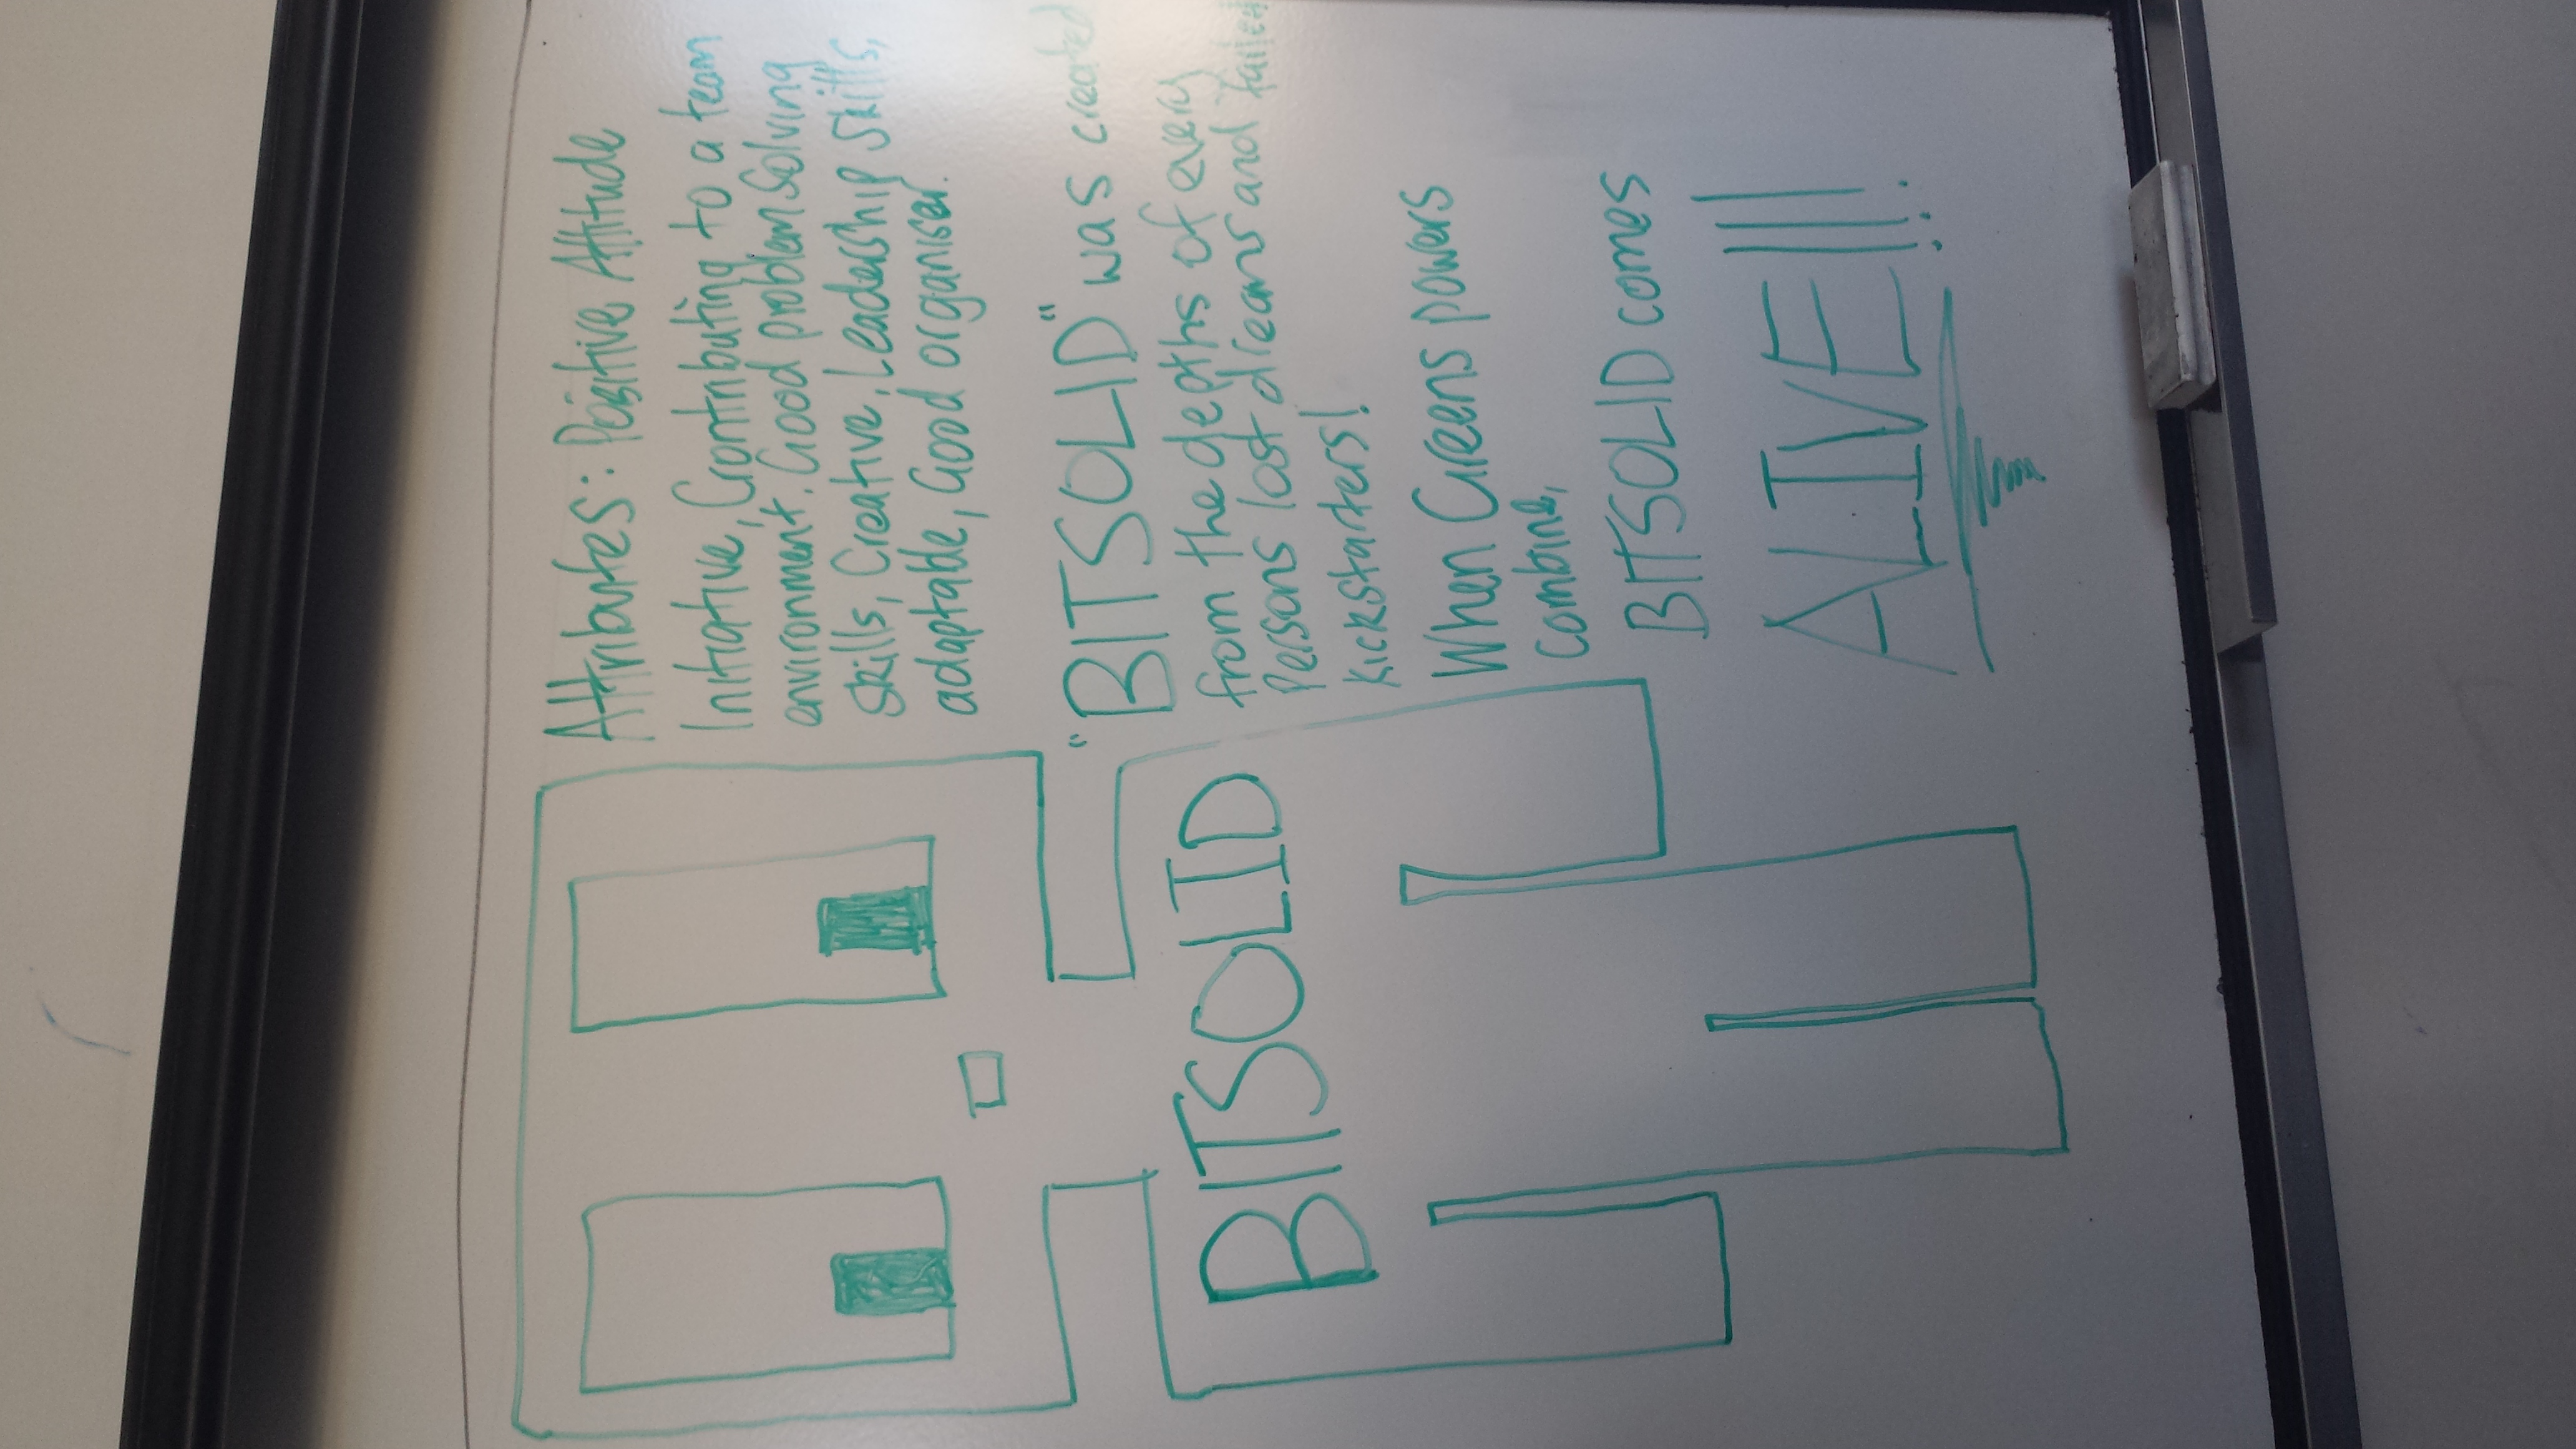 Attributes: Positive Attitude
Initiative, Contributing to a team
environment. Good problem Solving
skills, Creative, Leadership skills,
adaptable, Good organiser.
BITSOLID
"BITSOLID" was created
from the depths of every
Persons lost dreams and failed
Kickstarters!
When Greens powers
combine,
BITSOLID comes
ALIVE!!!